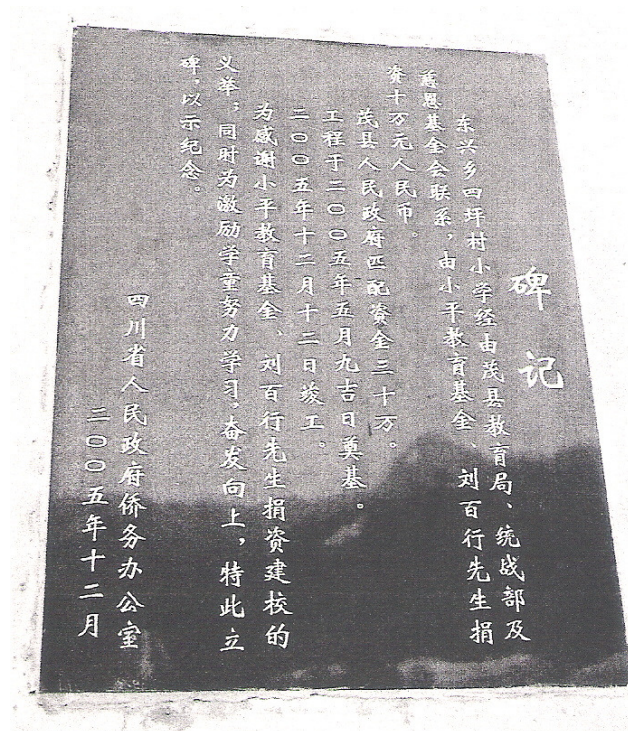 碑记
东兴乡四坪村小学经由茂县教育局、统战部及
慈恩基金会联系，由小平教育基金、刘百行先生捐
资十万元人民币。
茂县人民政府匹配资金三十万。
工程于二〇〇五年五月九吉日奠基。
二〇〇五年十二月十二日竣工。
为感谢小平教育基金、刘百行先生捐资建校的
义举；同时为激励学童努力学习，奋发向上，特此立
碑，以示纪念。
四川省人民政府侨务办公室
二〇〇五年十二月